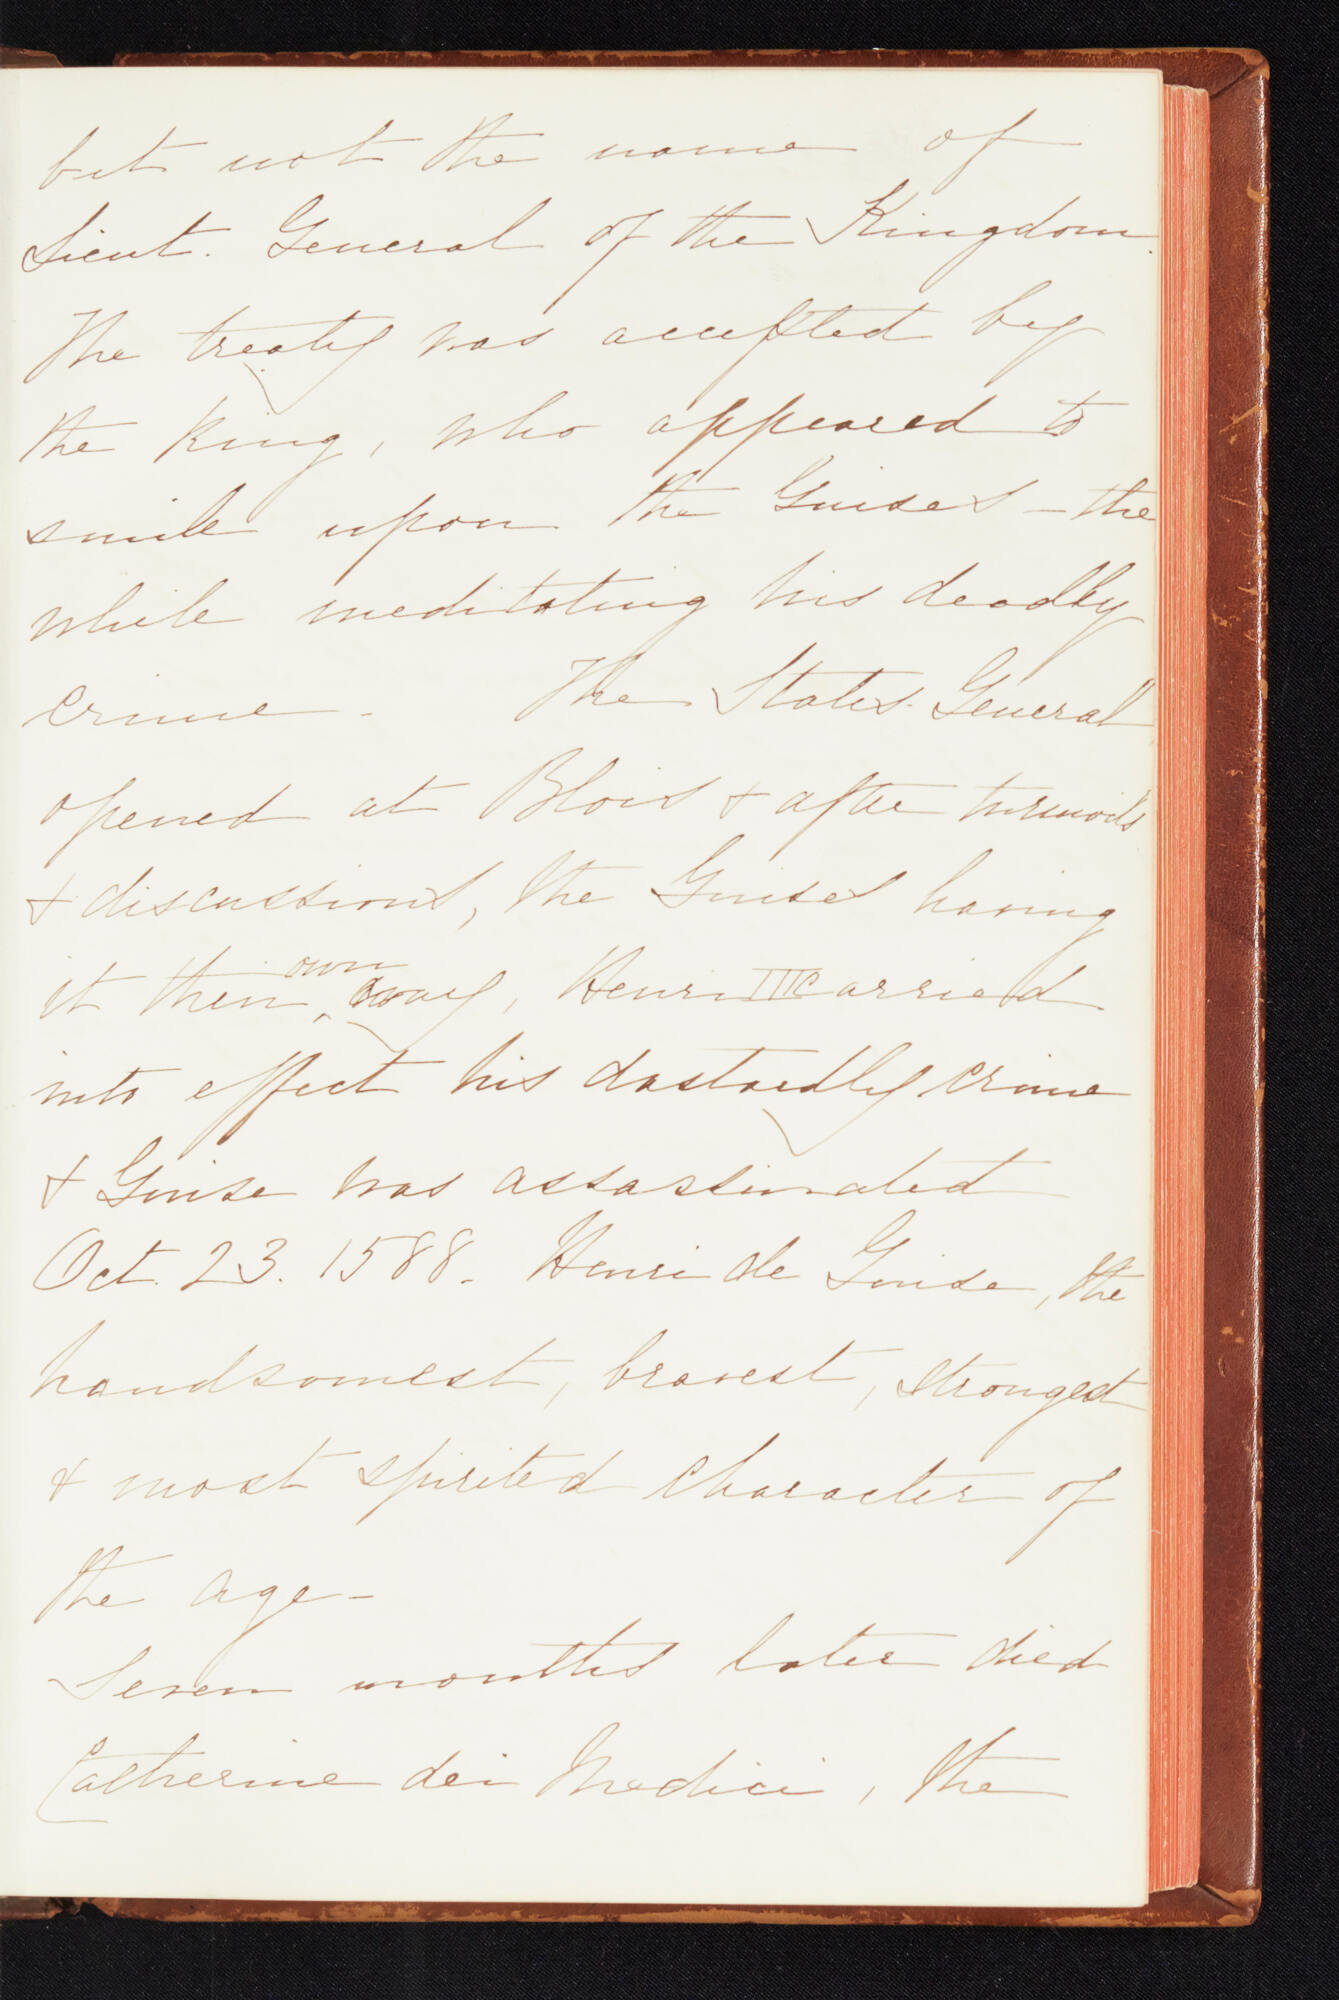 but not the name of
Lieut. General of the Kingdom.
The treaty was accepted by
the King, who appeared to
smile upon the Guises – the
while meditating his deadly
crime – The States General
opened at Blois & after turmoils
& discussions, the Guises having
it their own way, Henri III carried
into effect his dastardly crime
& Guise was assassinated
Oct. 23. 1588. Henri de Guise, the
handsomest, bravest, strongest
& most spirited character of
the age –
Seven months later died
Catherine dei Medici, the